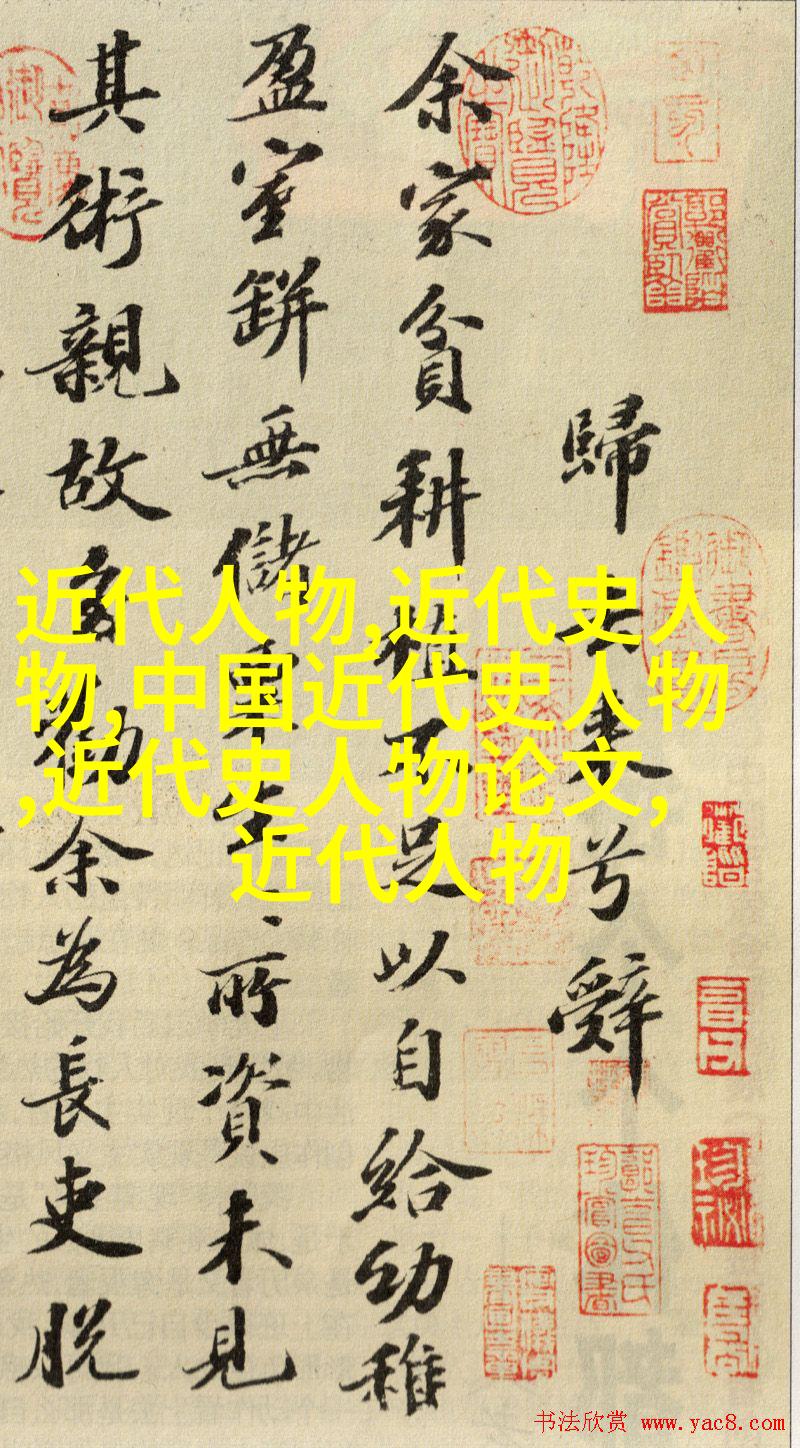 歸去来兮辭
余家貧耕植不足以自給幼稚
盈室缾無儲粟生〻所資未見
其術親故多勸余為長吏脱
近代人物,近代史人
物,中国近代史人物
,近代史人物论文,
近代人物
书法欣赏 www.yac8.com